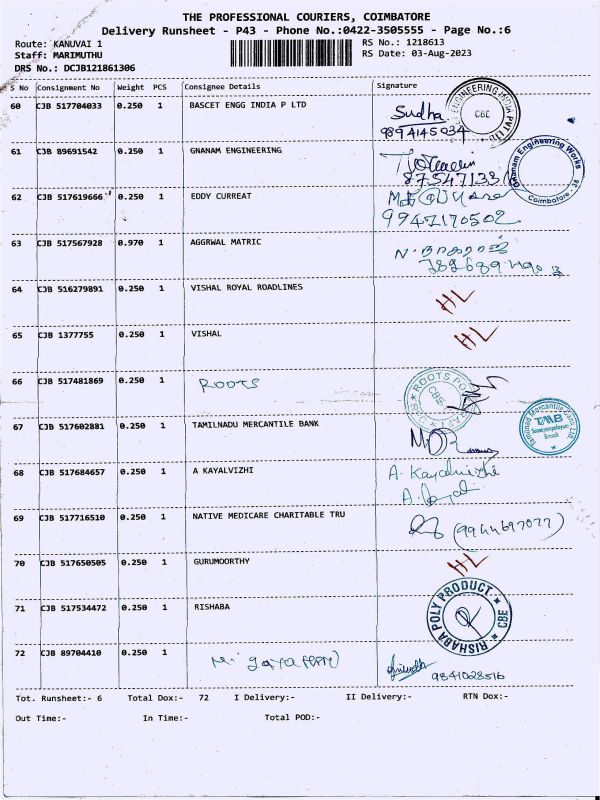 THE PROFESSIONAL COURIERS, COIMBATORE
Delivery Runsheet - P43 - Phone No.:0422-3505555 - Page No.:6
Route: KANUVAI 1 RS No.: 1218613
Staff: MARIMUTHU RS Date: 03-Aug-2023
DRS No.: DCJB121861306
S No Consignment No Weight PCS Consignee Details Signature
60 CJB 517704033 0.250 1 BASCET ENGG INDIA P LTD Sudha CBE
9894145034
61 CJB 89691542 0.250 1 GNANAM ENGINEERING Gnanam Engineering Works Coimbatore - 38
62 CJB 517619666 0.250 1 EDDY CURREAT
9947170502
63 CJB 517567928 0.970 1 AGGRWAL MATRIC N. நாகராஜ்
64 CJB 516279891 0.250 1 VISHAL ROYAL ROADLINES HL
65 CJB 1377755 0.250 1 VISHAL HL
66 CJB 517481869 0.250 1 ROOTS ROOTS CBE
67 CJB 517602881 0.250 1 TAMILNADU MERCANTILE BANK TMB Branch
68 CJB 517684657 0.250 1 A KAYALVIZHI A. Kayalvizhi
69 CJB 517716510 0.250 1 NATIVE MEDICARE CHARITABLE TRU (9944697077)
70 CJB 517650505 0.250 1 GURUMOORTHY HL
71 CJB 517534472 0.250 1 RISHABA RISHABA POLY PRODUCT CBE
72 CJB 89704410 0.250 1 9841028516
Tot. Runsheet:- 6 Total Dox:- 72 I Delivery:- II Delivery:- RTN Dox:-
Out Time:- In Time:- Total POD:-